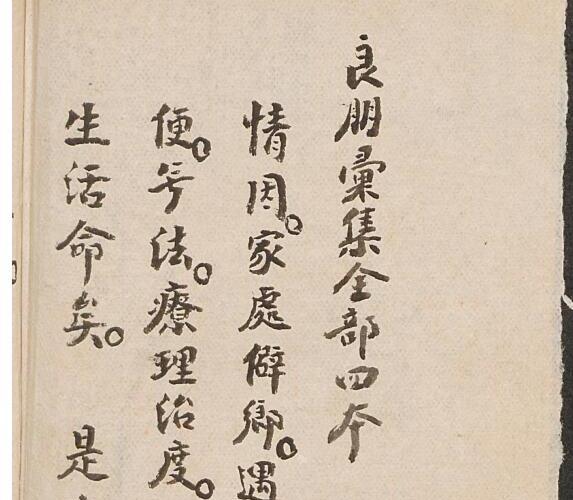 良朋彙集全部四本
情因。家處僻鄉。遇
便。号法。療理治度。
生活命矣。 是